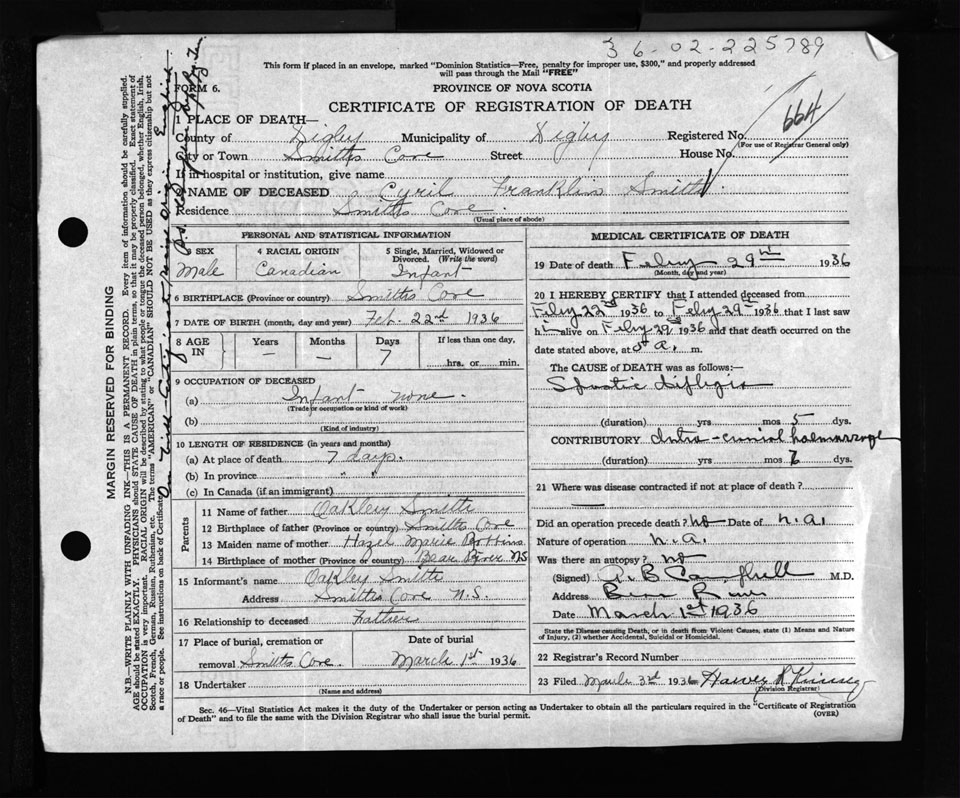 36-02-225789
This form if placed in an envelope, marked "Dominion Statistics—Free, penalty for improper use, $300," and properly addressed
will pass through the Mail "FREE"
FORM 6.
PROVINCE OF NOVA SCOTIA
CERTIFICATE OF REGISTRATION OF DEATH
664
1 PLACE OF DEATH—
County of Digby Municipality of Digby Registered No.
(For use of Registrar General only)
City or Town Smiths Cove Street House No.
If in hospital or institution, give name
2 NAME OF DECEASED Cyril Franklin Smith
Residence Smiths Cove
(Usual place of abode)
PERSONAL AND STATISTICAL INFORMATION
3 SEX Male
4 RACIAL ORIGIN Canadian
5 Single, Married, Widowed or Divorced. (Write the word) Infant
6 BIRTHPLACE (Province or country) Smiths Cove
7 DATE OF BIRTH (month, day and year) Feb. 22nd 1936
8 AGE IN Years — Months — Days 7 If less than one day, hrs. or min.
9 OCCUPATION OF DECEASED
(a) Infant none.
(Trade or occupation or kind of work)
(b)
(Kind of industry)
10 LENGTH OF RESIDENCE (in years and months)
(a) At place of death 7 days.
(b) In province " "
(c) In Canada (if an immigrant)
Parents
11 Name of father Oakley Smith
12 Birthplace of father (Province or country) Smiths Cove
13 Maiden name of mother Hazel Marie Robbins
14 Birthplace of mother (Province or country) Bear River NS
15 Informant's name Oakley Smith
Address Smiths Cove N.S.
16 Relationship to deceased Father
17 Place of burial, cremation or removal Smiths Cove.
Date of burial March 1st 1936
18 Undertaker
(Name and address)
MEDICAL CERTIFICATE OF DEATH
19 Date of death Febry 29th 1936
(Month, day and year)
20 I HEREBY CERTIFY that I attended deceased from
Febry 22nd 1936 to Febry 29th 1936 that I last saw
h alive on Febry 29 1936 and that death occurred on the
date stated above, at 5 a. m.
The CAUSE of DEATH was as follows:—
Spastic diplegia
(duration) yrs mos 5 dys.
CONTRIBUTORY Intra-cranial haemorrhage
(duration) yrs mos 7 dys.
21 Where was disease contracted if not at place of death?
Did an operation precede death? no Date of n.a.
Nature of operation n.a.
Was there an autopsy? no
(Signed) Campbell M.D.
Address Bear River
Date March 1st 1936
State the Disease causing Death, or in death from Violent Causes, state (1) Means and Nature
of Injury, (2) whether Accidental, Suicidal or Homicidal.
22 Registrar's Record Number
23 Filed March 3rd 1936 Harvey
(Division Registrar)
Sec. 46—Vital Statistics Act makes it the duty of the Undertaker or person acting as Undertaker to obtain all the particulars required in the "Certificate of Registration
of Death" and to file the same with the Division Registrar who shall issue the burial permit.
(OVER)
MARGIN RESERVED FOR BINDING
N.B.—WRITE PLAINLY WITH UNFADING INK—THIS IS A PERMANENT RECORD. Every item of information should be carefully supplied.
AGE should be stated EXACTLY. PHYSICIANS should STATE CAUSE OF DEATH in plain terms, so that it may be properly classified. Exact statement of
OCCUPATION is very important. RACIAL ORIGIN will be described by stating to what people or tongue the deceased person belonged, whether English, Irish,
Scotch, French, German, Russian, Ruthenian, etc. The terms "AMERICAN" or "CANADIAN" SHOULD NOT BE USED as they express citizenship but not
a race or people. See instructions on back of Certificate.